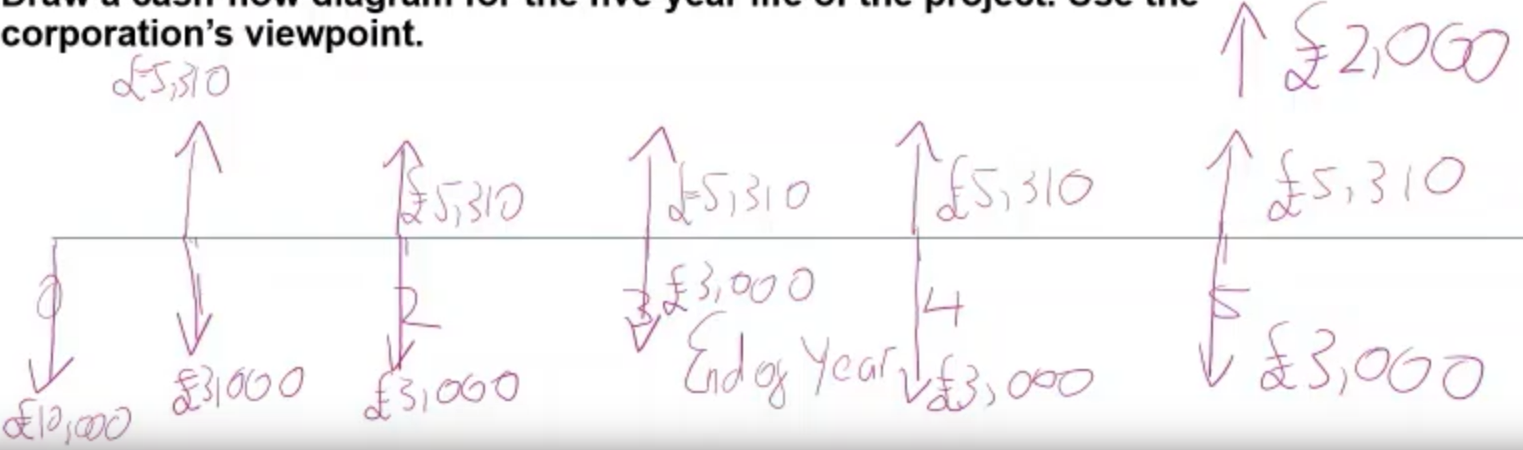 Draw a cash-flow diagram for the five-year life of the project. Use the
corporation's viewpoint.
£2,000
£5,310
£5,310
£5,310
£5,310
£5,310
0
2
3
£3,000
4
5
End of Year
£10,000
£3,000
£3,000
£3,000
£3,000